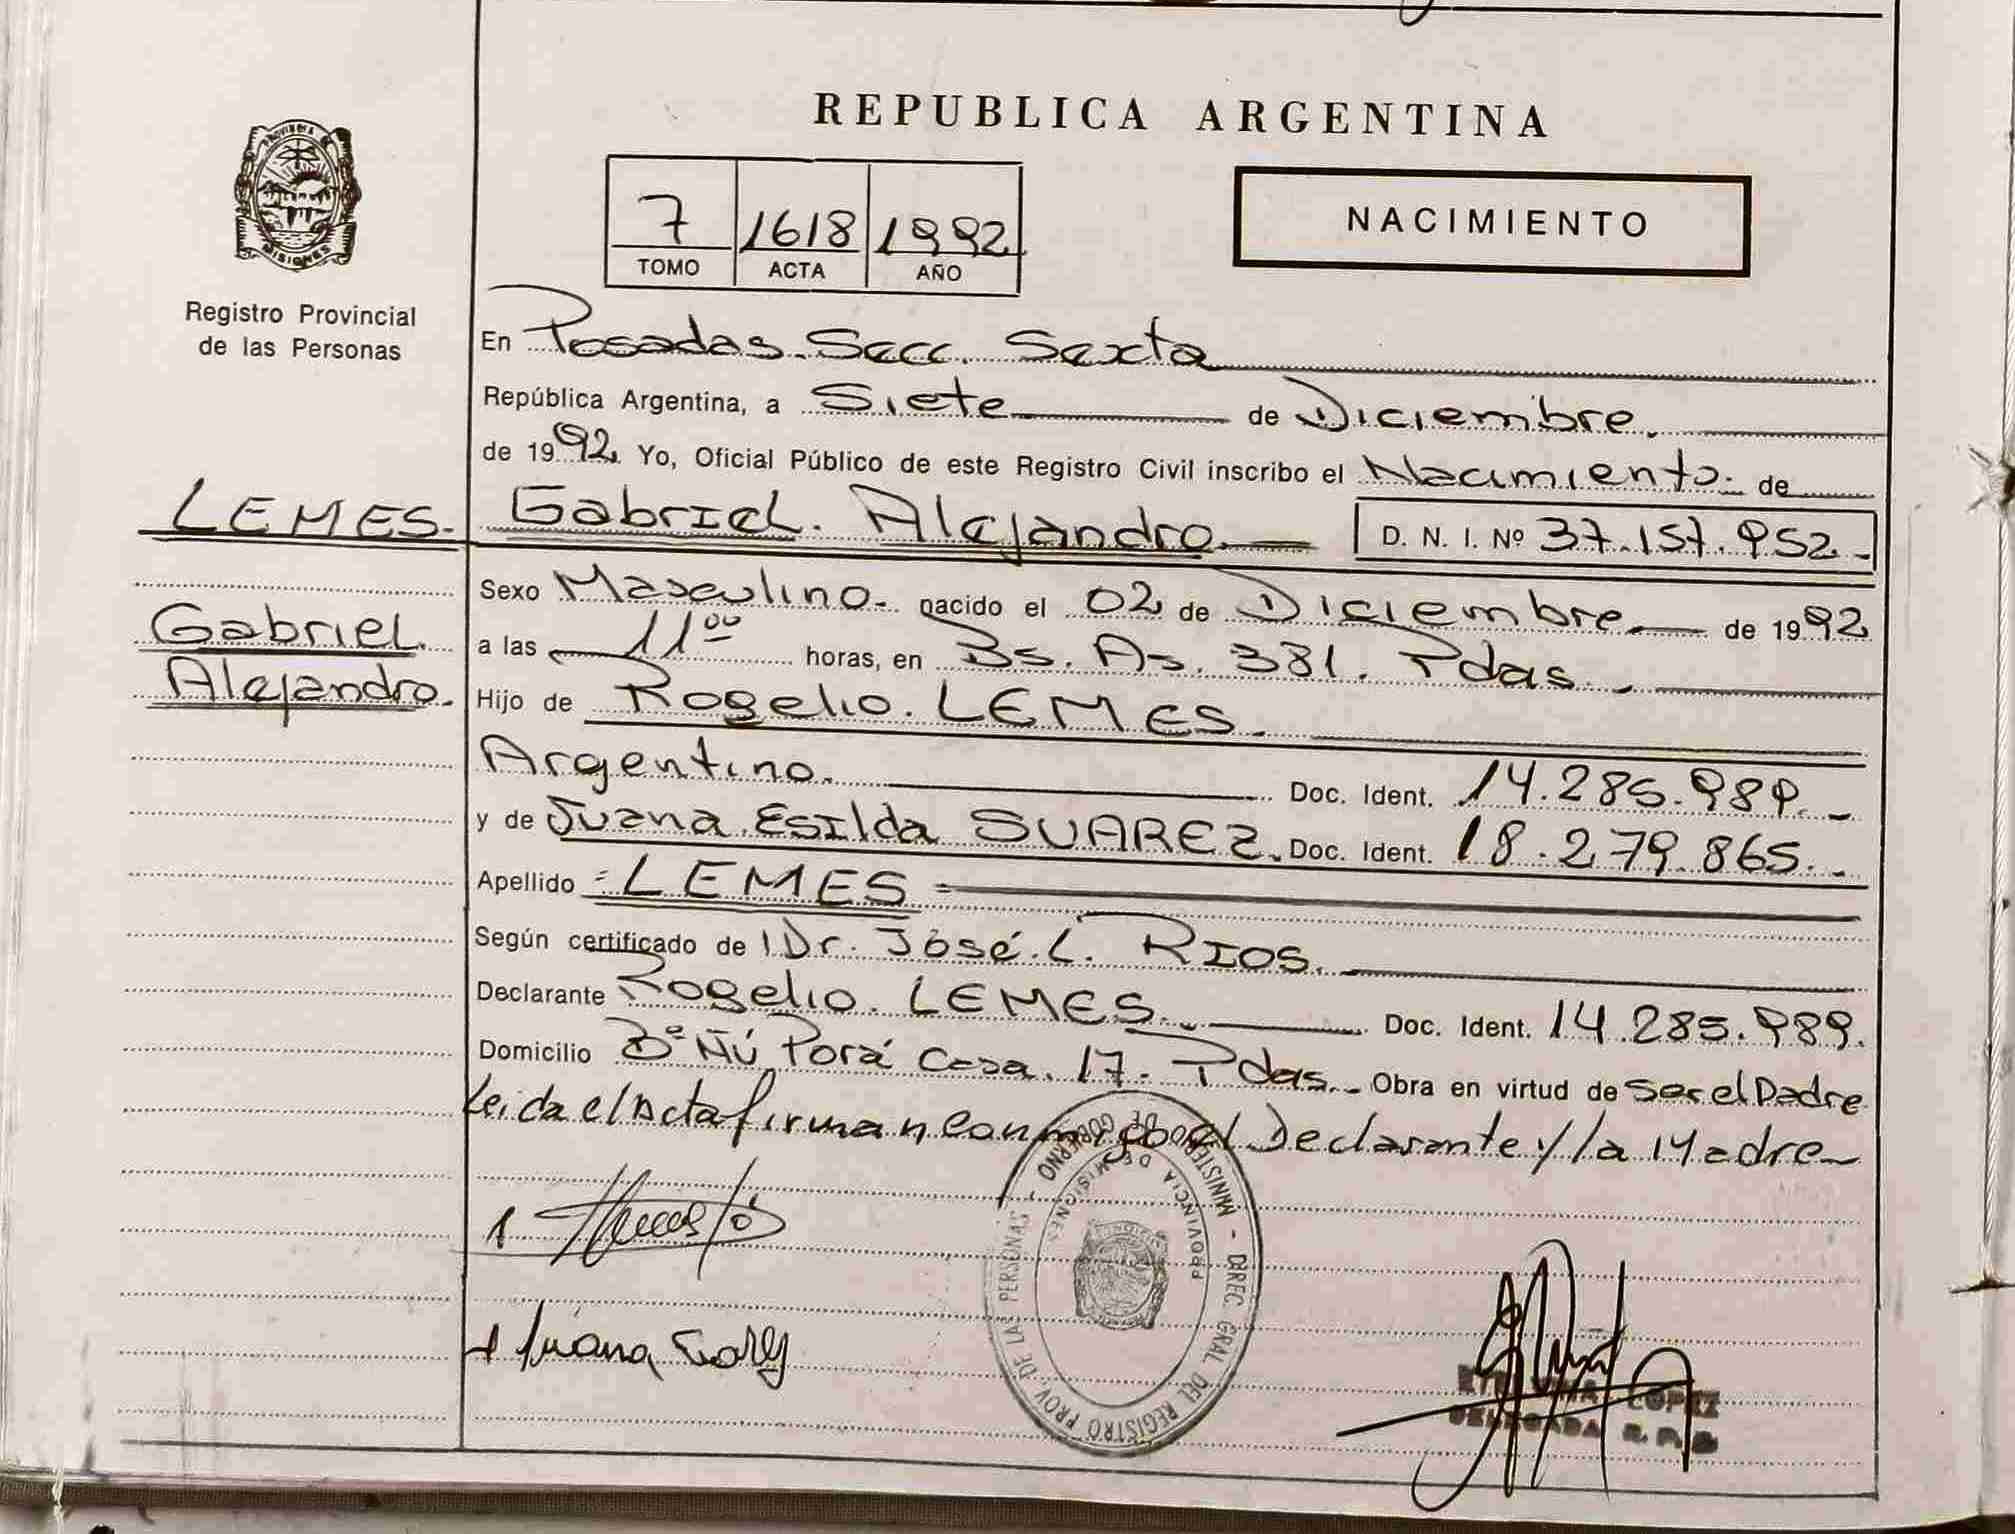 REPUBLICA ARGENTINA
PROVINCIA DE
MISIONES
Registro Provincial
de las Personas
7 1618 1992
TOMO ACTA AÑO
NACIMIENTO
En Posadas. Secc. Sexta
República Argentina, a Siete de Diciembre.
de 1992. Yo, Oficial Público de este Registro Civil inscribo el Nacimiento. de
LEMES. Gabriel. Alejandro. D. N. I. Nº 37.157.952.-
Gabriel.
Alejandro.
Sexo Masculino.- nacido el 02 de Diciembre. de 1992
a las 11 00 horas, en Bs. As. 331. Pdas.
Hijo de Rogelio. LEMES.
Argentino. Doc. Ident. 14.285.989.-
y de Juana Esilda SUAREZ. Doc. Ident. 18.279.865.-
Apellido = LEMES =
Según certificado de Dr. José. L. RIOS.
Declarante Rogelio. LEMES. Doc. Ident. 14.285.989.
Domicilio Bº Ñú Porá Casa. 17. Pdas.- Obra en virtud de ser el Padre
Leida el Acta firman conmigo el Declarante y la Madre
MINISTERIO DE GOBIERNO - DIREC GRAL DEL REGISTRO PROV DE LAS PERSONAS -
PROVINCIA DE MISIONES
Juana
LOPEZ
DELEGADA R. P. P.